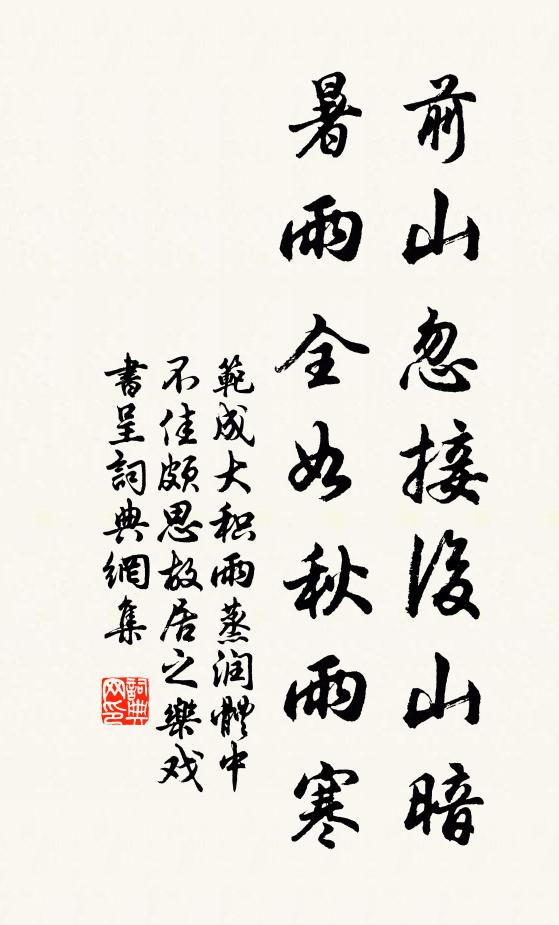 前山忽接後山暗
暑雨全如秋雨寒
範成大积雨蒸润體中
不佳頗思故居之樂戏
書呈詞典網集
詞典网印